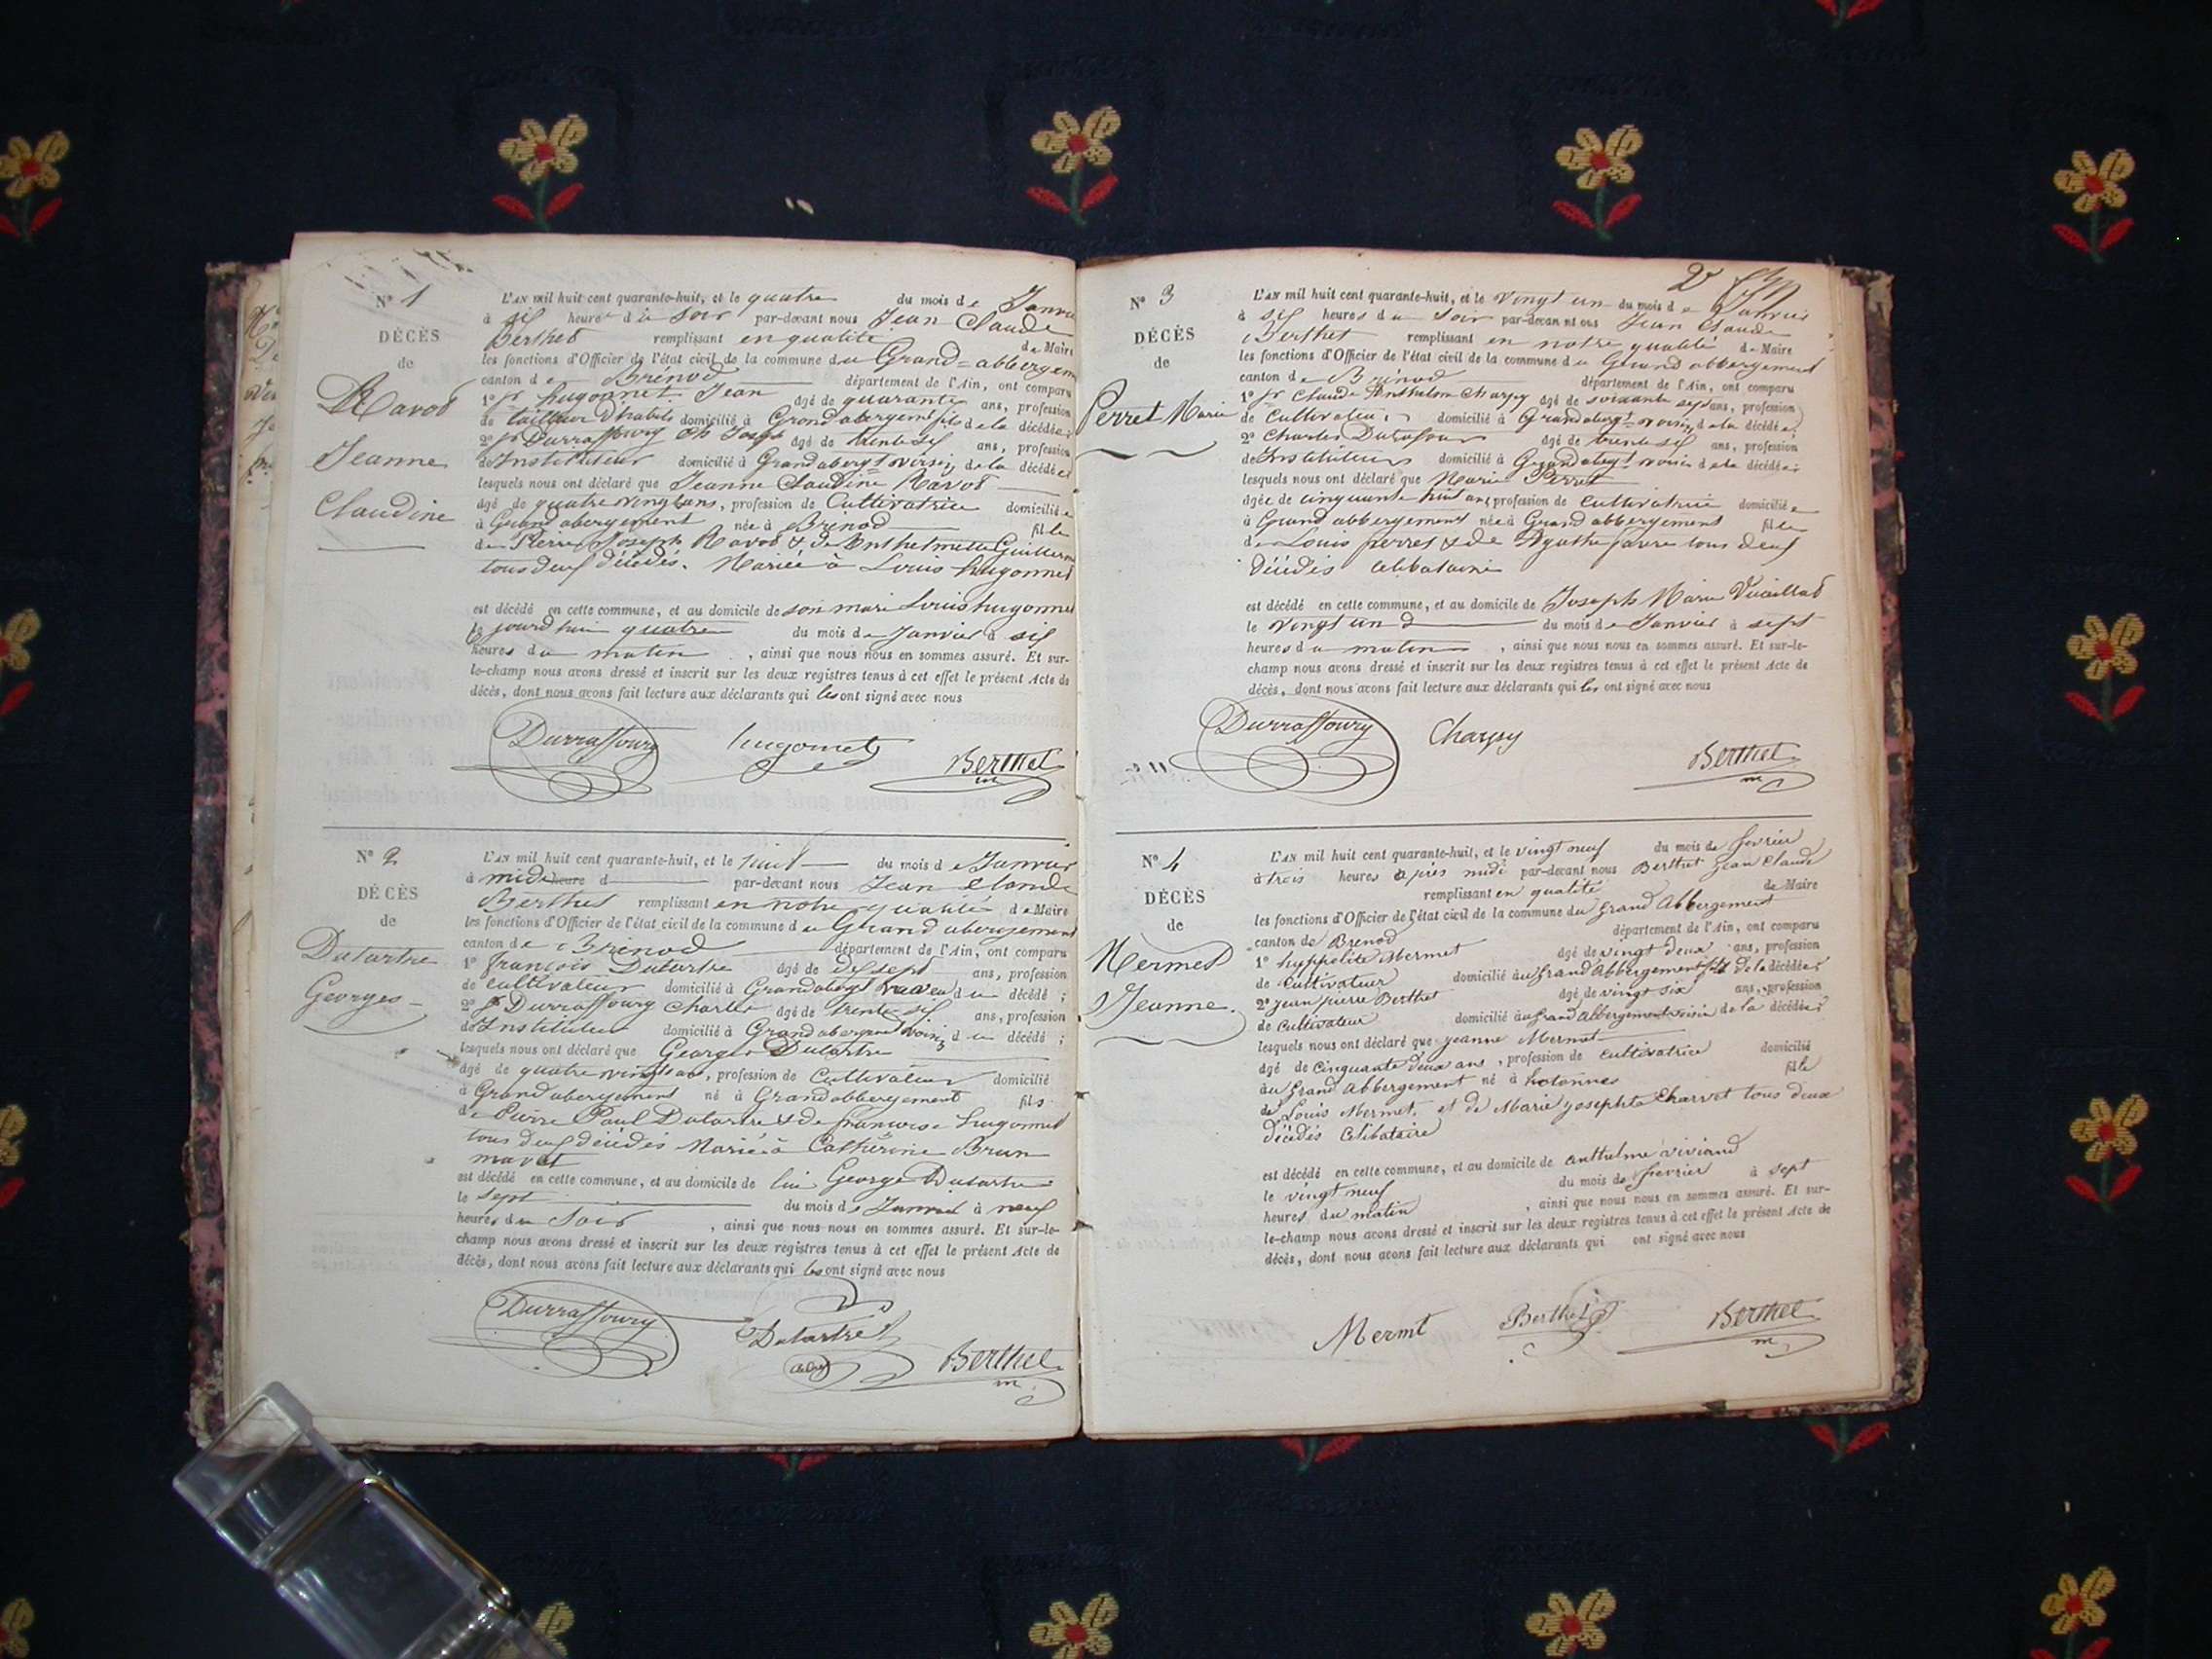 N° 1
DÉCÈS
de
Ravod
Jeanne
Claudine
L'AN mil huit cent quarante-huit, et le quatre du mois de Janvier
à six heures du soir par-devant nous Jean Claude
Berthet remplissant en qualité de Maire
les fonctions d'Officier de l'état civil de la commune du Grand=abbergem
canton de Brénod département de l'Ain, ont comparu
1° Sr hugonnet Jean âgé de quarante ans, profession
de tailleur d'habits domicilié à Grandabergemt fils de la décédée;
2° Sr Durraffourg Ch Joseph âgé de trente six ans, profession
de Instituteur domicilié à Grandabergt voisin de la décédée
lesquels nous ont déclaré que Jeanne Claudine Ravod
âgé de quatre vingt ans, profession de Cultivatrice domiciliée
à Grand abergement née à Brénod fille
de Pierre Joseph Ravod & de Anthelmette Guillerm
tous deux décédés. Mariée à Louis hugonnet
est décédé en cette commune, et au domicile de son mari Louis hugonnet
le jourd'hui quatre du mois de Janvier à six
heures du matin, ainsi que nous nous en sommes assuré. Et sur-
le-champ nous avons dressé et inscrit sur les deux registres tenus à cet effet le présent Acte de
décès, dont nous avons fait lecture aux déclarants qui les ont signé avec nous
Durraffourg hugonnet Berthet
m
N° 2
DÉCÈS
de
Dutartre
Georges
L'AN mil huit cent quarante-huit, et le huit du mois de Janvier
à midi heure d par-devant nous Jean Claude
Berthet remplissant en notre qualité de Maire
les fonctions d'Officier de l'état civil de la commune du Grand abergement
canton de Brénod département de l'Ain, ont comparu
1° françois Dutartre âgé de dix sept ans, profession
de cultivateur domicilié à Grandabergt neveu du décédé;
2° Sr Durraffourg Charles âgé de trente six ans, profession
de Instituteur domicilié à Grand abergem voisin du décédé;
lesquels nous ont déclaré que Georges Dutartre
âgé de quatre vingt ans, profession de Cultivateur domicilié
à Grand abergement né à Grand abbergement fils
de Pierre Paul Dutartre & de françoise hugonnet
tous deux décédés Marié à Catherine Brun
mavet
est décédé en cette commune, et au domicile de lui George Dutartre
le sept du mois de Janvier à neuf
heures du Soir, ainsi que nous nous en sommes assuré. Et sur-le-
champ nous avons dressé et inscrit sur les deux registres tenus à cet effet le présent Acte de
décès, dont nous avons fait lecture aux déclarants qui les ont signé avec nous
Durraffourg Dutartre Berthet
m
2
N° 3
DÉCÈS
de
Perret Marie
L'AN mil huit cent quarante-huit, et le vingt un du mois de Janvier
à six heures du soir par-devant nous Jean Claude
Berthet remplissant en notre qualité de Maire
les fonctions d'Officier de l'état civil de la commune du Grand abbergement
canton de Brénod département de l'Ain, ont comparu
1° Sr Claude Anthelme Charpy âgé de soixante sept ans, profession
de Cultivateur domicilié à Grandabergt voisin de la décédée;
2° Charles Durafour âgé de trente six ans, profession
de Instituteur domicilié à Grandabegt voisin de la décédée;
lesquels nous ont déclaré que Marie Perret
âgée de cinquante huit ans, profession de cultivatrice domiciliée
à Grand abbergement née à Grand abbergement fille
de Louis perret & de Agathe favre tous deux
décédés célibataire
est décédé en cette commune, et au domicile de Joseph Marie Vuaillat
le vingt un d du mois de Janvier à sept
heures du matin, ainsi que nous nous en sommes assuré. Et sur-le-
champ nous avons dressé et inscrit sur les deux registres tenus à cet effet le présent Acte de
décès, dont nous avons fait lecture aux déclarants qui les ont signé avec nous
Durraffourg Charpy Berthet
m
N° 4
DÉCÈS
de
Mermet
Jeanne.
L'AN mil huit cent quarante-huit, et le vingt neuf du mois de fevrier
à trois heures après midi par-devant nous Berthet Jean Claude
remplissant en qualité de Maire
les fonctions d'Officier de l'état civil de la commune du Grand Abbergement
canton de Brenod département de l'Ain, ont comparu
1° hyppolite Mermet âgé de vingt deux ans, profession
de Cultivateur domicilié au Grand Abbergement fils de la décédée;
2° jean pierre Berthet âgé de vingt six ans, profession
de Cultivateur domicilié au Grand Abbergement voisin de la décédée;
lesquels nous ont déclaré que jeanne Mermet
âgé de Cinquante deux ans, profession de Cultivatrice domicilié
au Grand Abbergement né à hotonnes fille
de Louis Mermet, et de Marie josephte Charvet tous deux
décédés Célibataire
est décédé en cette commune, et au domicile de anthelme viviand
le vingt neuf du mois de fevrier à sept
heures du matin, ainsi que nous nous en sommes assuré. Et sur-
le-champ nous avons dressé et inscrit sur les deux registres tenus à cet effet le présent Acte de
décès, dont nous avons fait lecture aux déclarants qui ont signé avec nous
Mermt Berthet Berthet
m